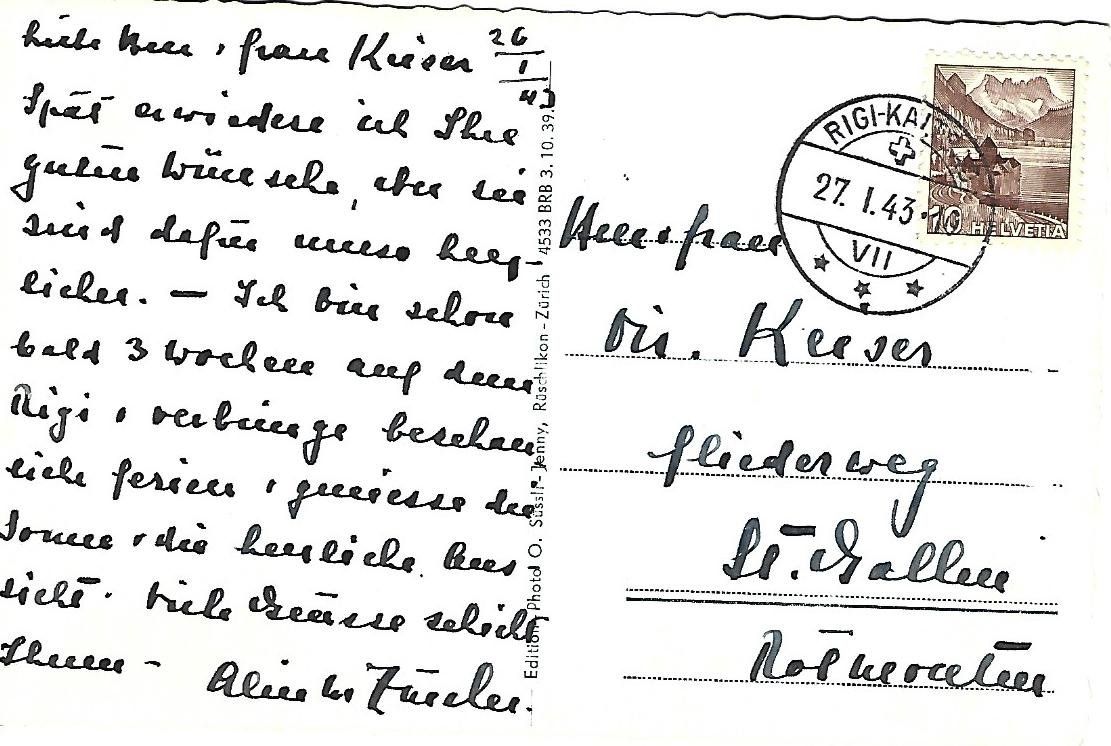 Liebe Herr + Frau Kieser
26
1
43
Spät erwiedere ich Ihre
guten Wünsche, aber sie
sind dafür umso herz-
licher. — Ich bin schon
bald 3 Wochen auf dem
Rigi + verbringe beschau
liche Ferien + geniesse die
Sonne + die herrliche Aus
sicht. Viele Grüsse schickt
Ihnen -
Zürcher.
Edition Photo O. Süssli-Jenny, Rüschlikon-Zürich 4533 BRB 3. 10. 39.
RIGI-KALTB
27. I. 43 - 10
VII
HELVETIA
Herr + Frau
Dir. Kieser
Fliederweg
St. Gallen
Rotmonten